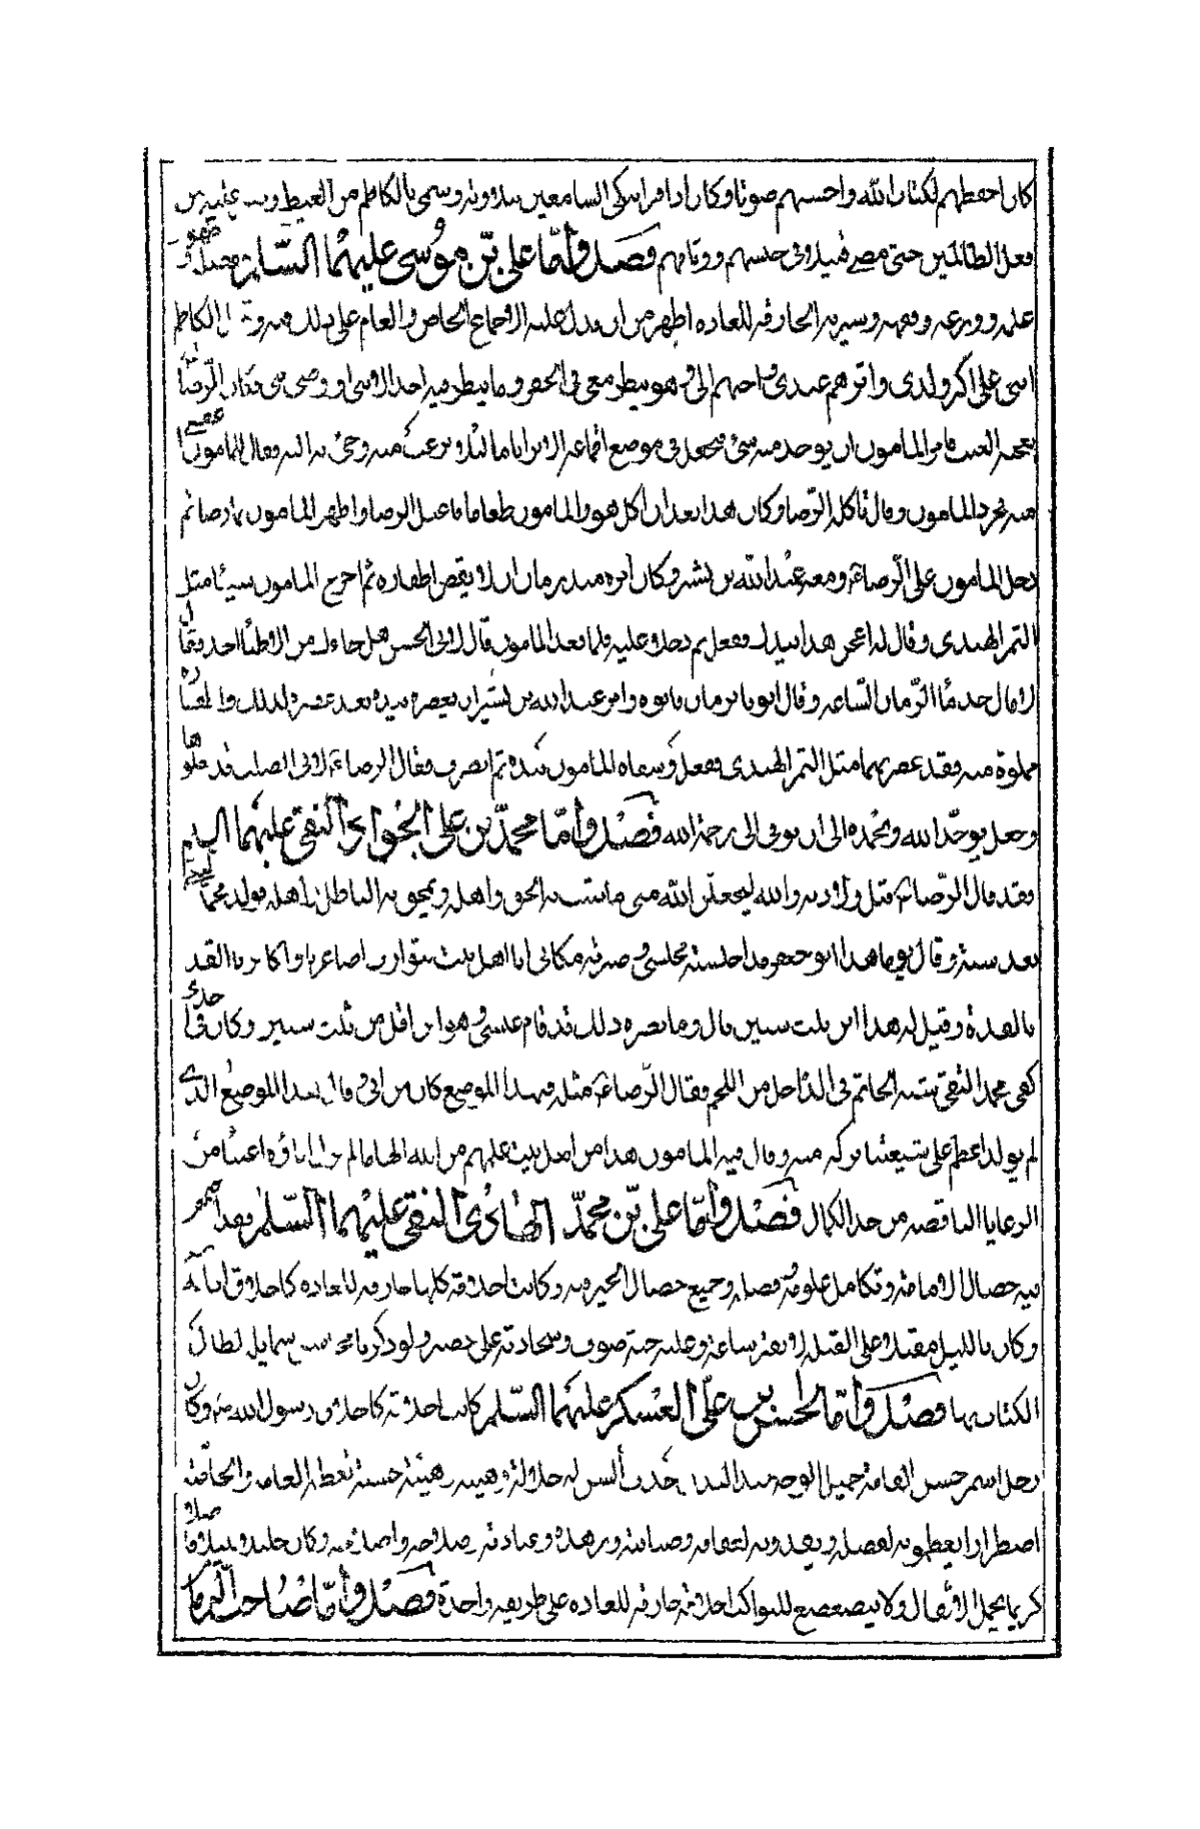 كان احفظهم لكتاب الله واحسنهم صوتا وكان اذا قرا يبكى السامعين بتلاوته وسمى بالكاظم من الغيظ وصبر عليه من
فعل الظالمين حتى مضى قتيلا فى حبسهم ووثاقهم فصل واما على بن موسى عليهما السلام ففضله
علمه وورعه وفهمه وسيرته الخارقة للعادة اظهر من ان يدل عليه الاجماع الخاص والعام على ذلك منه وقال الكاظم
ابنى على اكبر ولدى واثرهم عندى واحبهم الى وهو ينظر معى فى الجفر وما ينظر فيه احد الا نبى او وصى نبى الرضا
يعجبه العنب فامر المامون ان يوخذ منه شى فجعل فى موضع اقماعه الابر اياما ثم نزعت منه وجى به اليه فقال المامون
منه المامون وقال تاكل الرضا وكان هذا بعد ان اكل هو والمامون طعاما فاعتل الرضا واظهر المامون تمارضا ثم
دخل المامون على الرضا ع ومعه عبد الله بن بشير وكان امره منذ زمان ان لا يقص اظفاره ثم اخرج المامون شيئا مثل
التمر الهندى وقال له اعجن هذا بيدك ففعل ثم دخلا عليه فلما قعد المامون قال لابى الحسن هل جاءك من الاطباء احد فقال
لا قال خذ ماء الرمان الساعة وقال ايتونا برمان فاتوه وامر عبد الله بن بشير ان يعصره بيده فعصره لذلك
مملوة منه فقد عصر بهما مثل التمر الهندى ففعل وسقاه المامون بيده ثم انصرف فقال الرضا ع لابى الصلت قد فعلوها
وجعل يوحد الله ويمجده الى ان توفى الى رحمة الله فصل واما محمد بن على الجواد التقى عليهما السلم
فقد قال الرضا ع قبل ولادته والله ليجعلن الله منى ما يثبت به الحق واهله ويمحق به الباطل واهله فولد محمد
بعد سنة وقال يوما هذا ابو جعفر قد اجلسته مجلسى وصيرته مكانى انا اهل بيت يتوارث اصاغرنا اكابرنا القذة
بالقذة وقيل له هذا ابن ثلث سنين قال وما يضره ذلك قد قام عيسى وهو ابن اقل من ثلث سنين وكان فى احدى
كفى محمد التقى شبه الخاتم فى الداخل من اللحم فقال الرضا ع مثله فى هذا الموضع كان من ابى وقال هذا المولود الذى
لم يولد اعظم على شيعتنا بركة منه وقال فيه المامون هذا من اهل بيت علمهم من الله الهاما لم يزل اباؤه اغنياء من
الرعايا الناقصه من حد الكمال فصل واما على بن محمد الهادى النقى عليهما السلم فقد اجتمعت
فيه خصال الامامة وتكامل علومه وفضله وجميع خصال الخير فيه وكانت اخلاقه كلها خارقة للعادة كاخلاق ابائه
وكان بالليل مقبلا على القبلة لا يفتر ساعة وعليه جبة صوف وسجادته على حصير ولو ذكرنا محاسن شمايله لطال
الكتاب بها فصل واما الحسن بن على العسكرى عليهما السلم كانت اخلاقه كاخلاق رسول الله ص وكان
رجلا اسمر حسن القامة جميل الوجه جيد البدن حدث السن له جلالة وهيبة وهيئة حسنة تعظمه العامة والخاصة
اضطرارا يعظمونه لفضله ويقدونه لعفافه وصيانته وزهده وعبادته وصلاحه واصلاحه وكان جليلا نبيلا فاضلا
كريما يحمل الاثقال ولا يتضعضع للنوائب اخلاقه خارقة للعادة على طريقة واحدة فصل واما صاحب الزمان